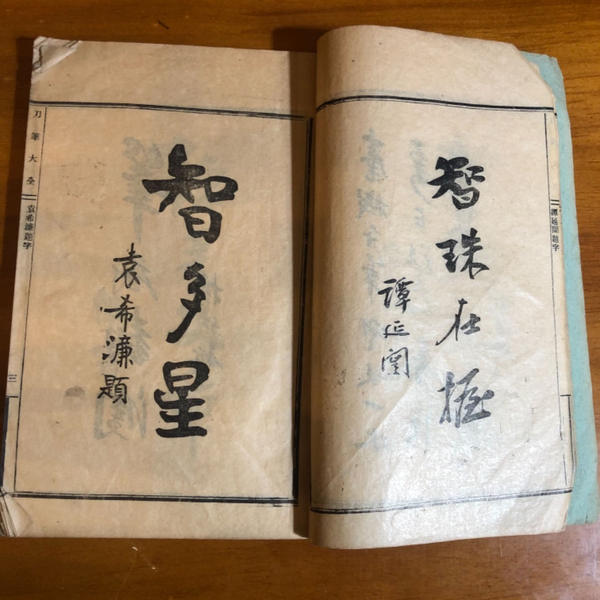 譚延闓題字
智珠在握
譚延闓
智多星
袁希濂題
刀筆大全
袁希濂題字
三